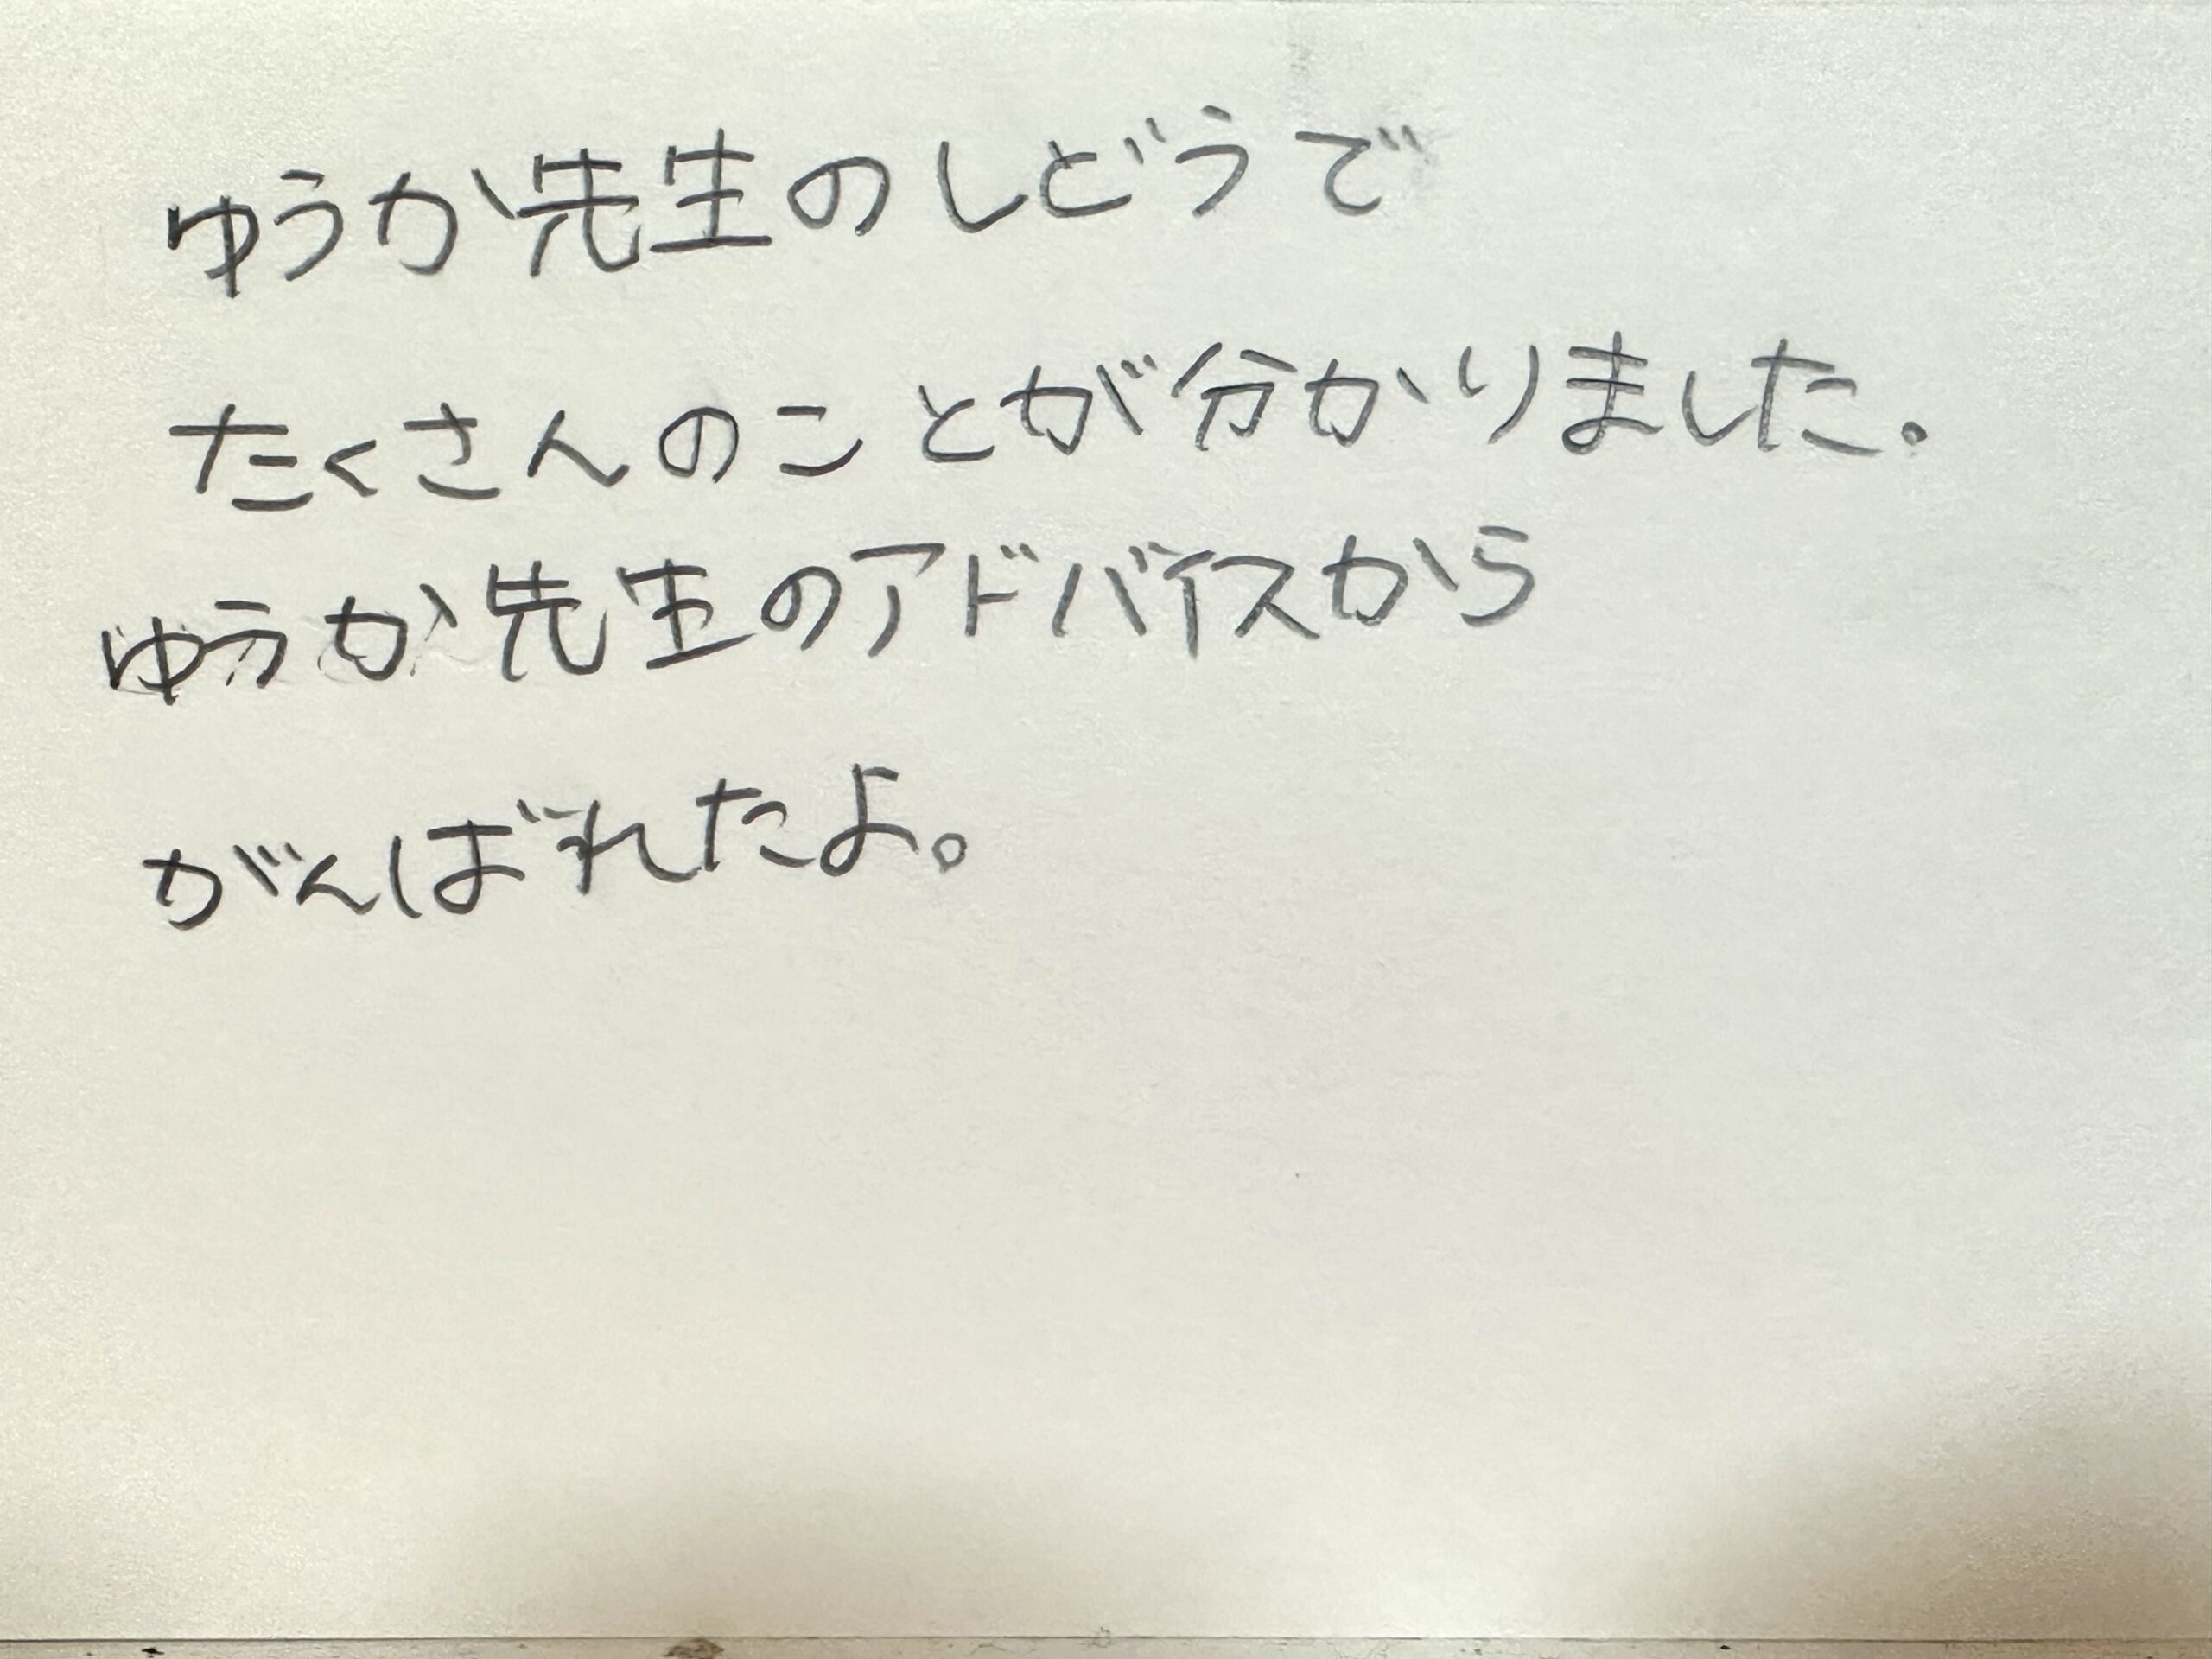 ゆうか先生のしどうで
たくさんのことが分かりました。
ゆうか先生のアドバイスから
がんばれたよ。